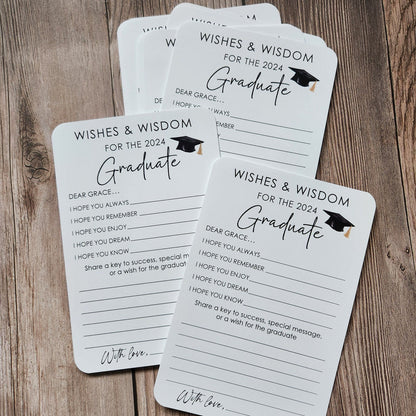 WISHES & WISDOM
FOR THE 2024
Graduate
DEAR GRACE...
I HOPE YOU ALWAYS
I HOPE YOU REMEMBER
WISHES & WISDOM
FOR THE 2024
Graduate
DEAR GRACE...
I HOPE YOU ALWAYS
I HOPE YOU REMEMBER
I HOPE YOU ENJOY
I HOPE YOU DREAM
I HOPE YOU KNOW
Share a key to success, special message,
or a wish for the graduate
With love,
WISHES & WISDOM
FOR THE 2024
Graduate
DEAR GRACE...
I HOPE YOU ALWAYS
I HOPE YOU REMEMBER
I HOPE YOU ENJOY
I HOPE YOU DREAM
I HOPE YOU KNOW
Share a key to success, special message,
or a wish for the graduate
With love,